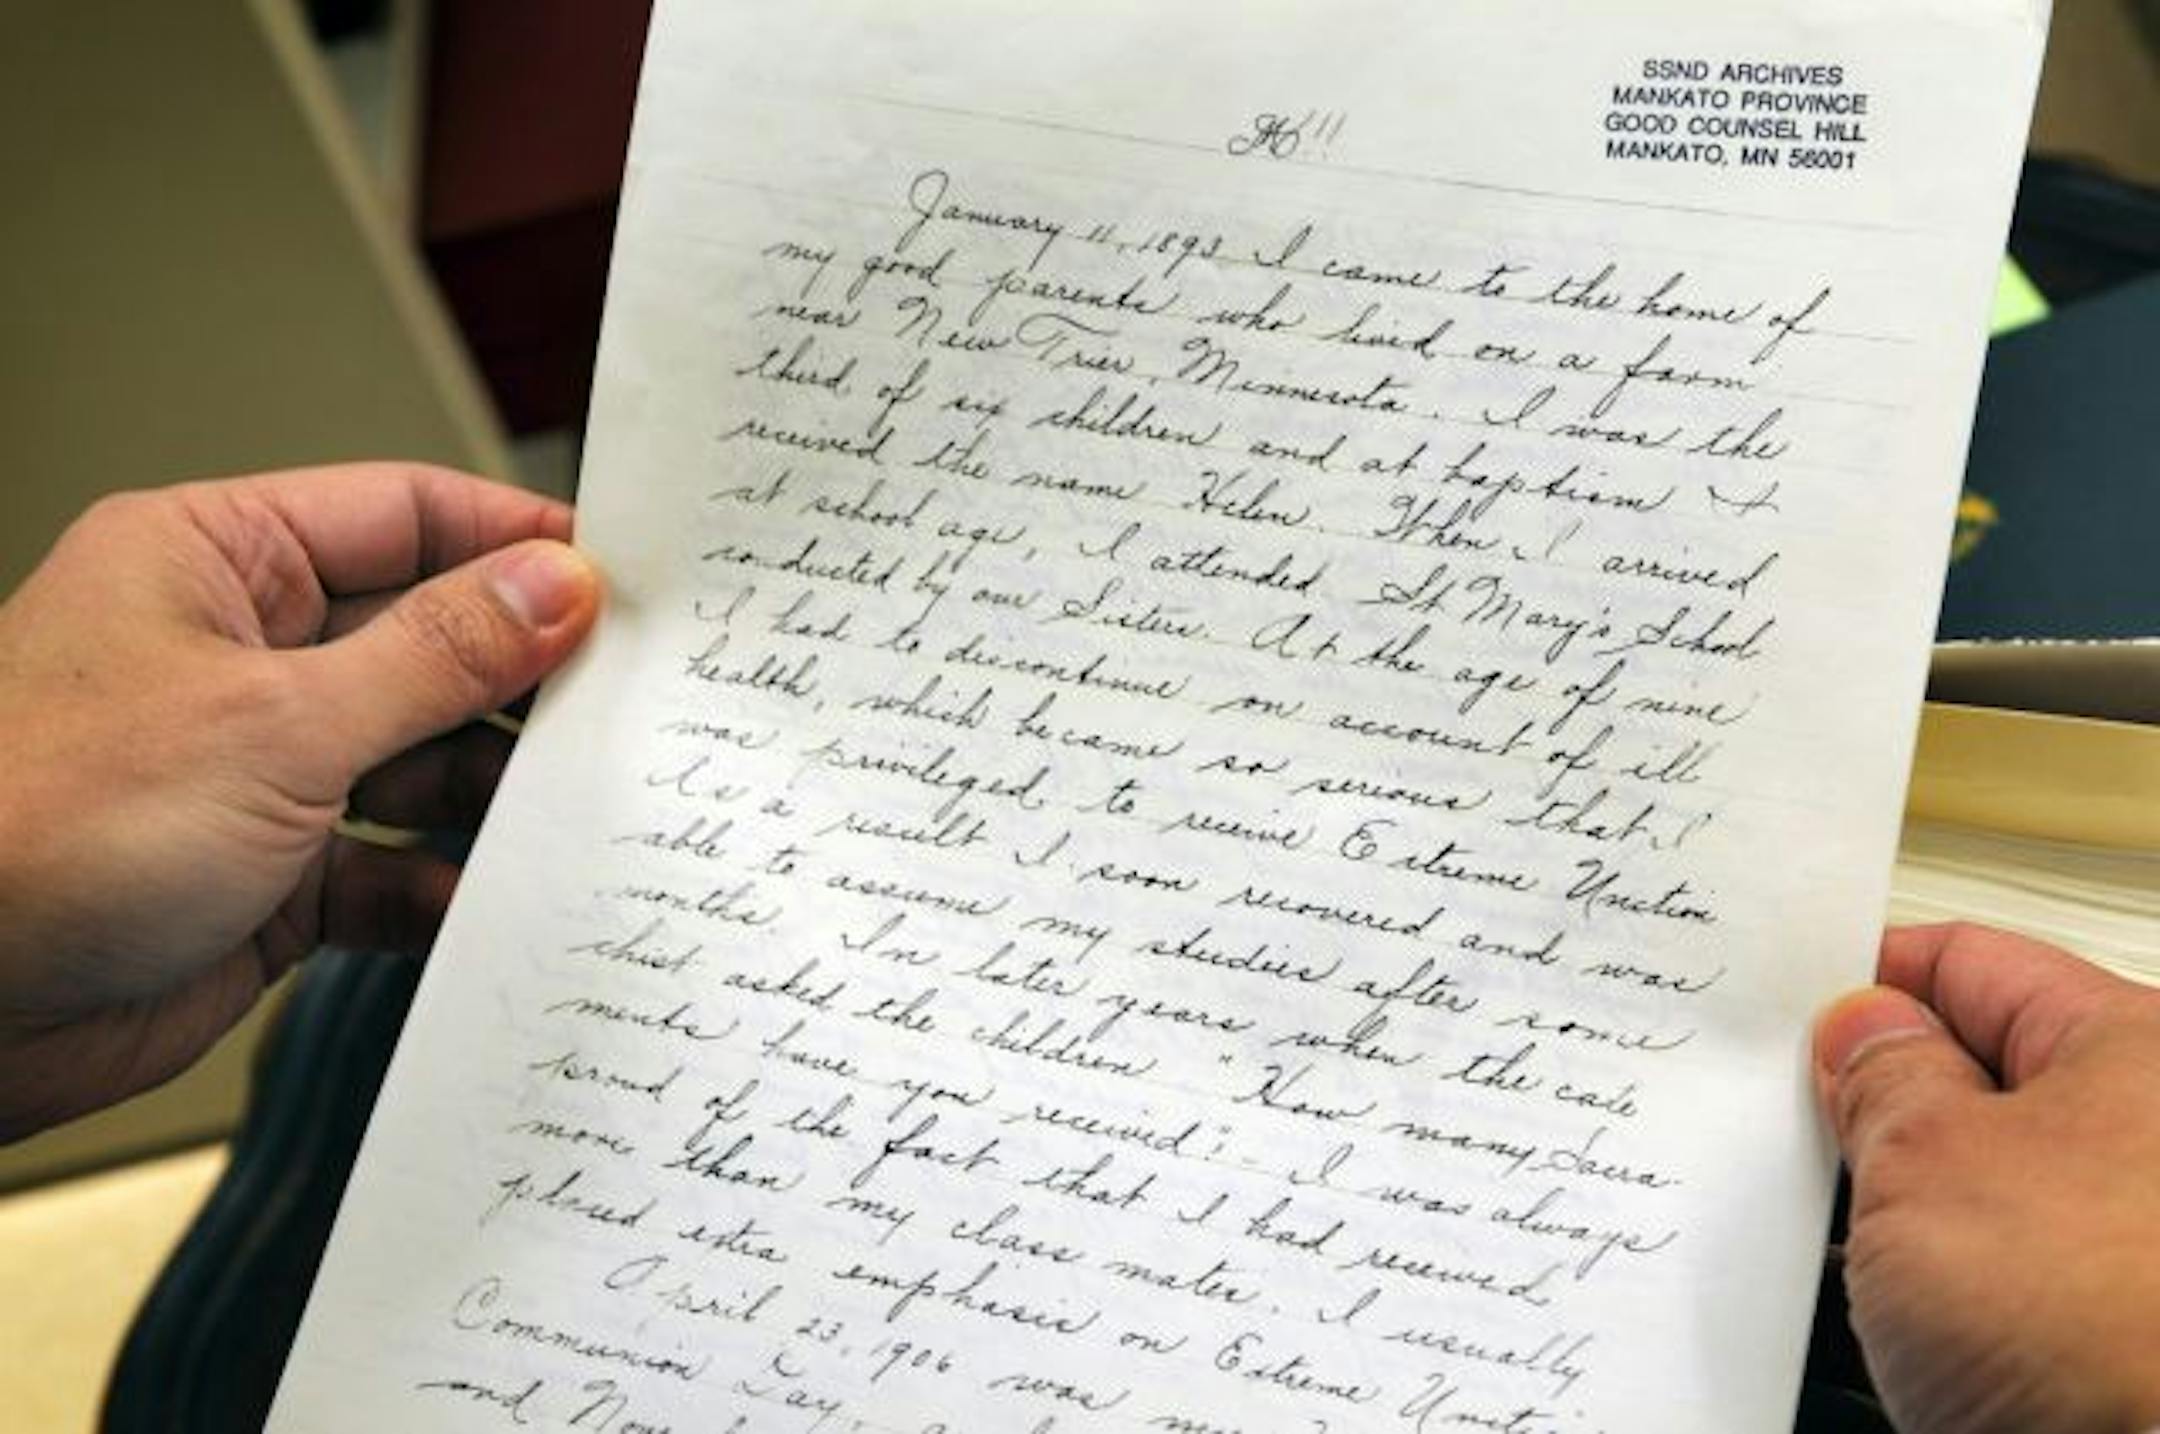 SSND ARCHIVES
MANKATO PROVINCE
GOOD COUNSEL HILL
MANKATO, MN 56001
January 11, 1893 I came to the home of
my good parents who lived on a farm
near New Trier, Minnesota. I was the
third of six children and at baptism
received the name Helen. When I arrived
at school age, I attended St Mary's School
conducted by our Sisters. At the age of nine
I had to discontinue on account of ill
health, which became so serious that I
was privileged to receive Extreme Unction
As a result I soon recovered and was
able to assume my studies after some
months. In later years when the cate
chist asked the children "How many Sacra-
ments have you received": - I was always
proud of the fact that I had received
more than my class mates. I usually
placed extra emphasis on Extreme
April 23, 1906 was my
Communion Day,
and